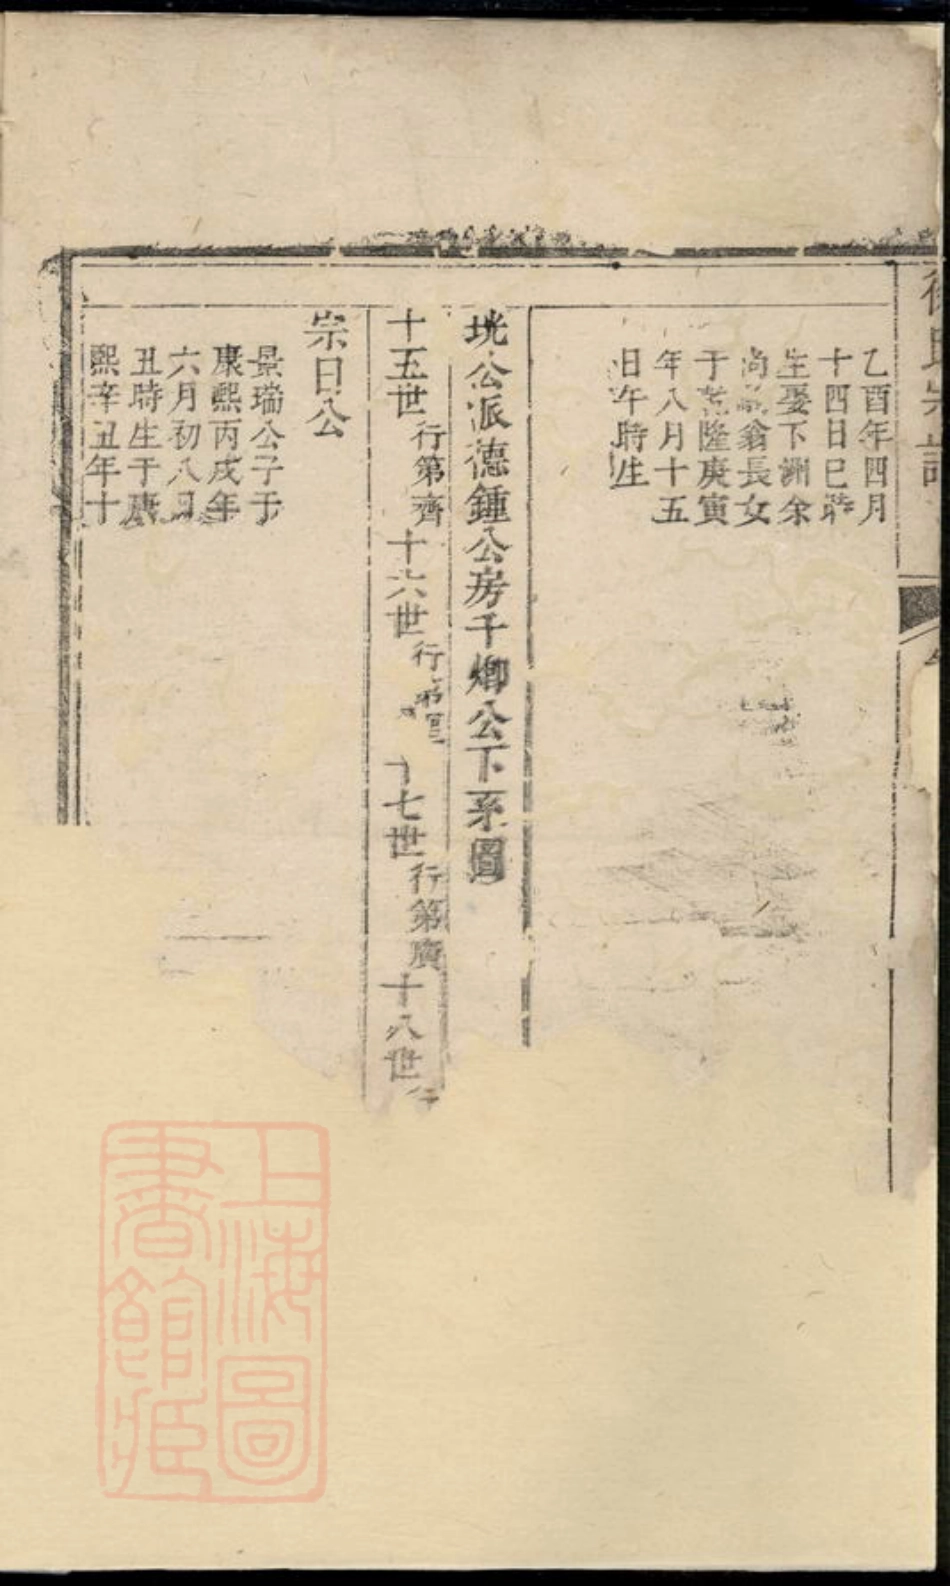 氏宗譜
乙酉年四月
十四日巳時
生娶下洲余
尚 翁長女
于乾隆庚寅
年八月十五
日午時生
垙公派德鍾公房千卿公下系圖
十五世 行第齊 十六世 行第 十七世 行第廣 十八世 行
宗日公
景瑞公子于
康熙丙戌年
六月初八日
丑時生于康
熙辛丑年十
上海圖
書館藏